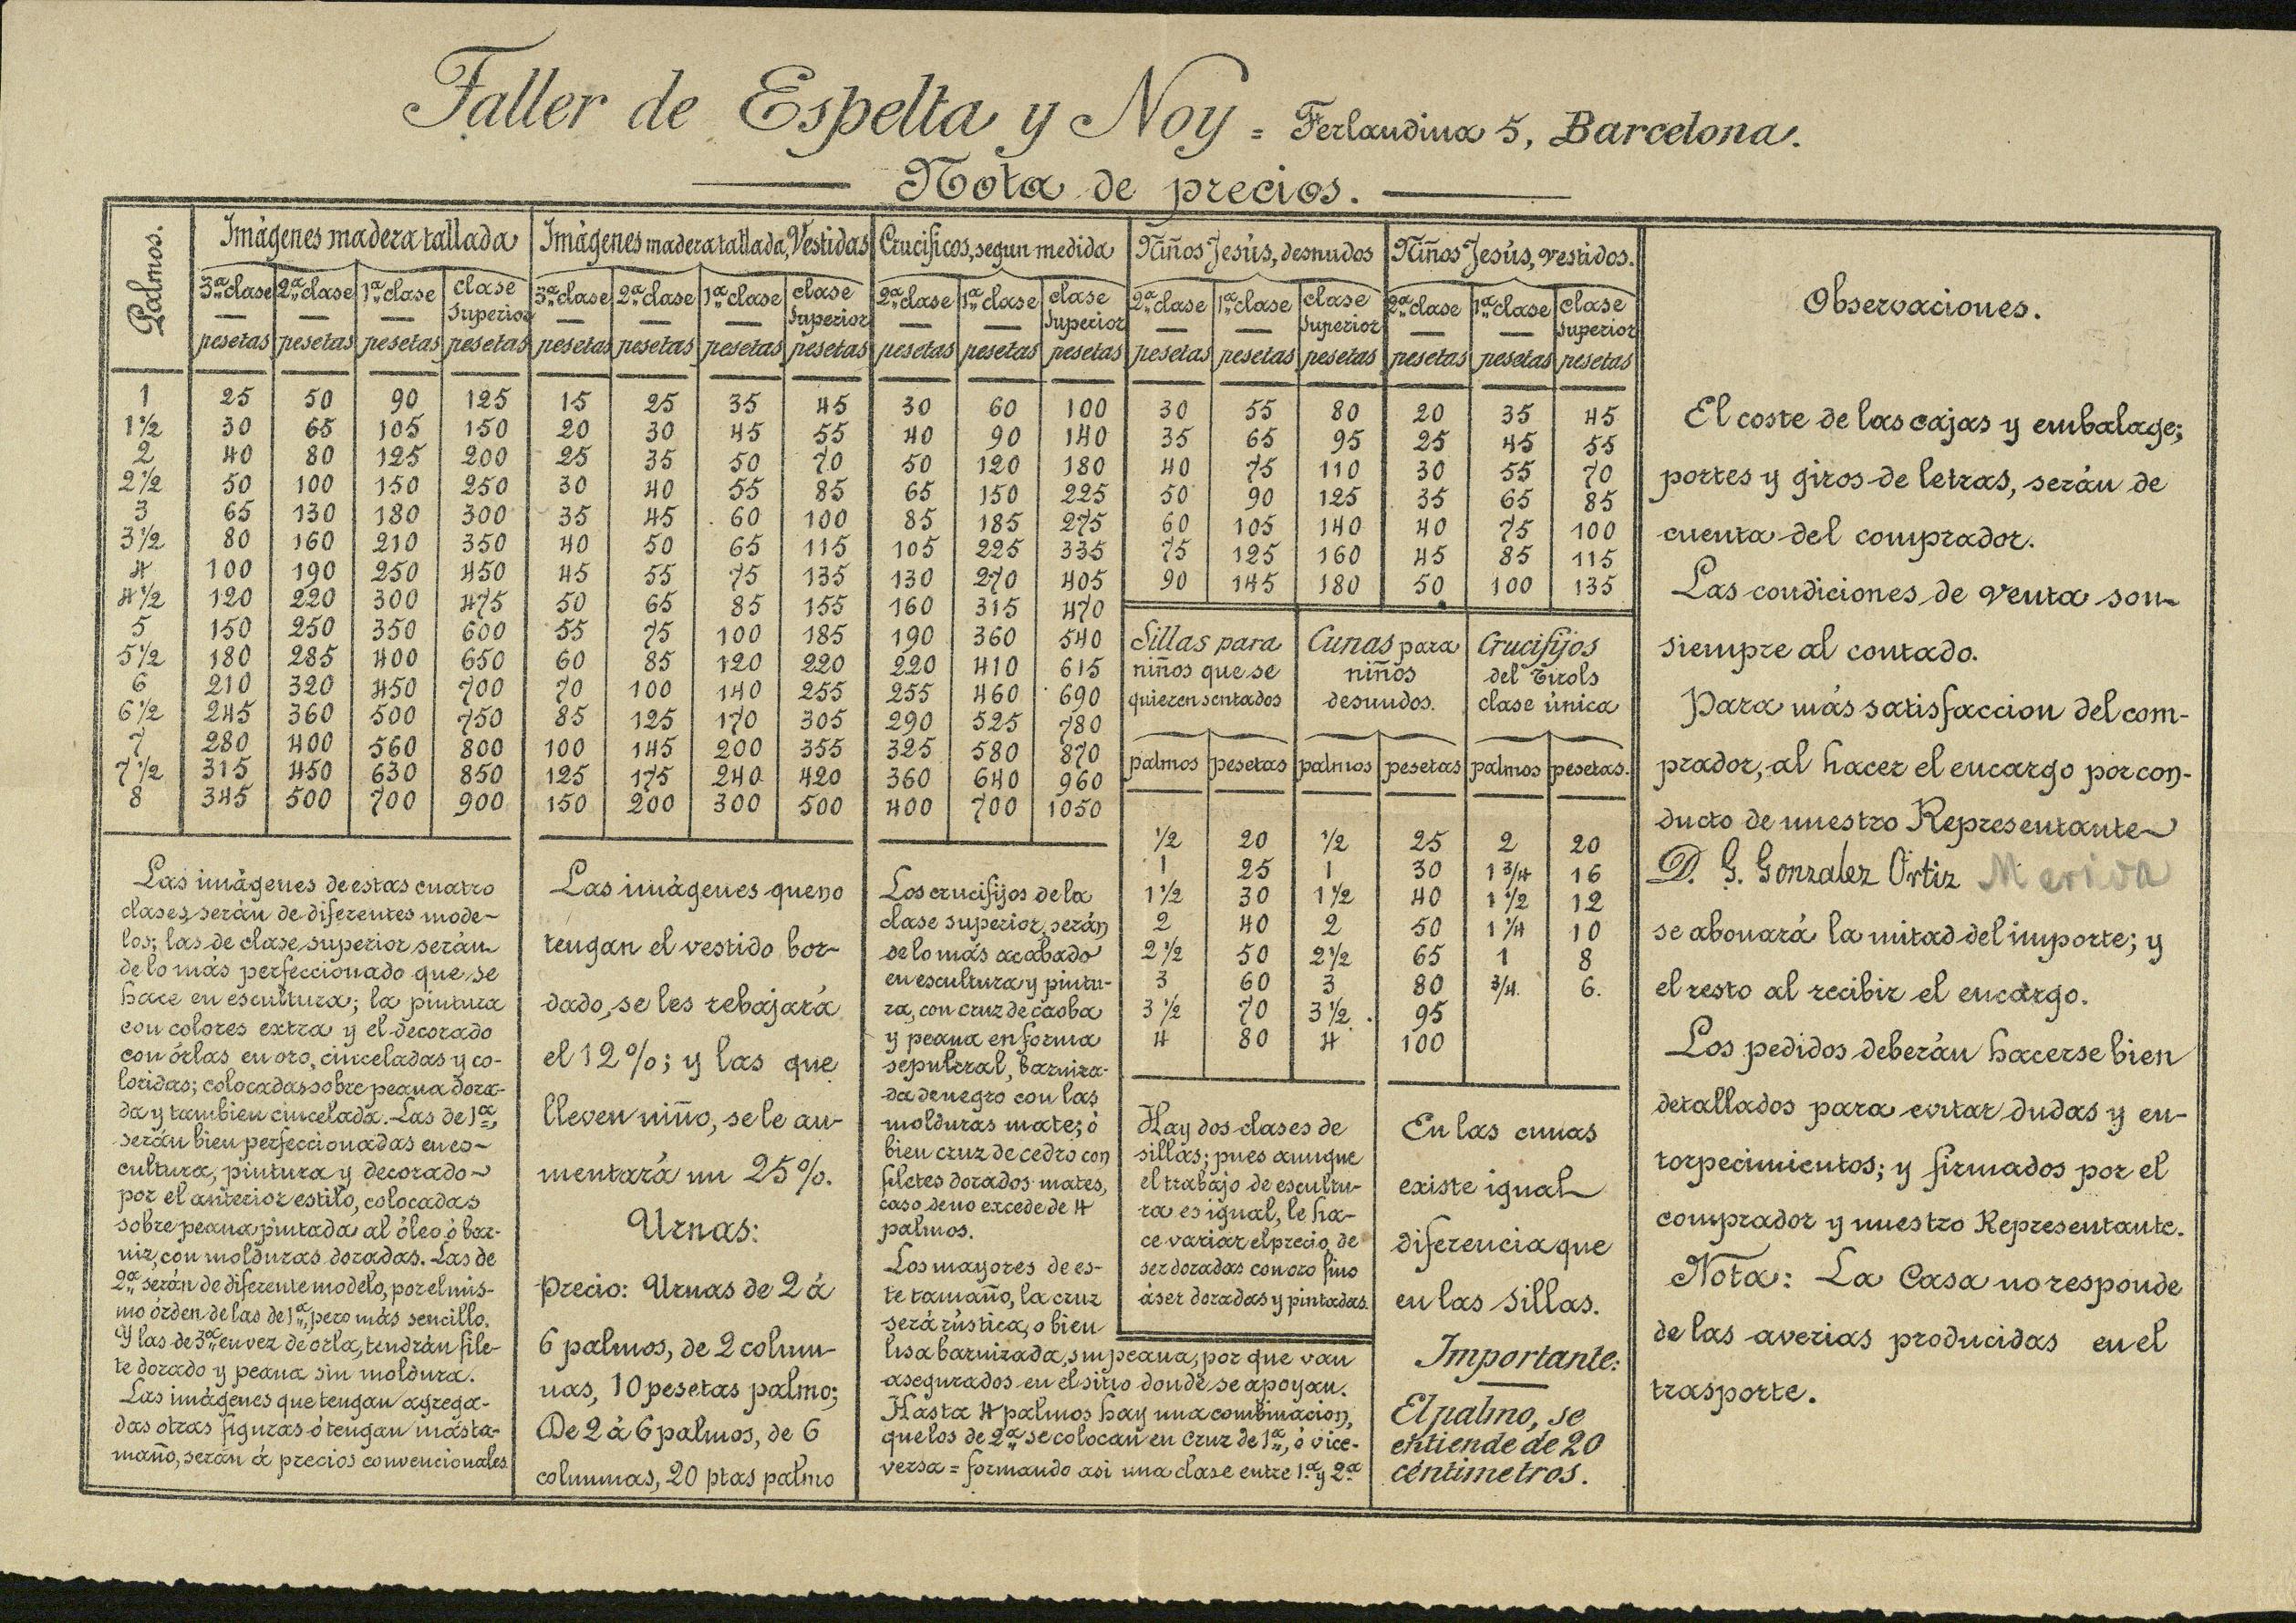 Taller de Espelta y Noy = Ferlandina 5, Barcelona.
Nota de precios.
Palmos. | Imágenes madera tallada | Imágenes madera tallada, Vestidas | Crucificos, segun medida | Niños Jesús, desnudos | Niños Jesús, vestidos. | Observaciones.
3ª clase | 2ª clase | 1ª clase | clase Superior | 3ª clase | 2ª clase | 1ª clase | clase Superior | 2ª clase | 1ª clase | clase Superior | 2ª clase | 1ª clase | clase Superior | 2ª clase | 1ª clase | clase Superior
pesetas | pesetas | pesetas | pesetas | pesetas | pesetas | pesetas | pesetas | pesetas | pesetas | pesetas | pesetas | pesetas | pesetas | pesetas | pesetas | pesetas
1 | 25 | 50 | 90 | 125 | 15 | 25 | 35 | 45 | 30 | 60 | 100 | 30 | 55 | 80 | 20 | 35 | 45
1 1/2 | 30 | 65 | 105 | 150 | 20 | 30 | 45 | 55 | 40 | 90 | 140 | 35 | 65 | 95 | 25 | 45 | 55
2 | 40 | 80 | 125 | 200 | 25 | 35 | 50 | 70 | 50 | 120 | 180 | 40 | 75 | 110 | 30 | 55 | 70
2 1/2 | 50 | 100 | 150 | 250 | 30 | 40 | 55 | 85 | 65 | 150 | 225 | 50 | 90 | 125 | 35 | 65 | 85
3 | 65 | 130 | 180 | 300 | 35 | 45 | 60 | 100 | 85 | 185 | 275 | 60 | 105 | 140 | 40 | 75 | 100
3 1/2 | 80 | 160 | 210 | 350 | 40 | 50 | 65 | 115 | 105 | 225 | 335 | 75 | 125 | 160 | 45 | 85 | 115
4 | 100 | 190 | 250 | 450 | 45 | 55 | 75 | 135 | 130 | 270 | 405 | 90 | 145 | 180 | 50 | 100 | 135
4 1/2 | 120 | 220 | 300 | 475 | 50 | 65 | 85 | 155 | 160 | 315 | 470
5 | 150 | 250 | 350 | 600 | 55 | 75 | 100 | 185 | 190 | 360 | 540
5 1/2 | 180 | 285 | 400 | 650 | 60 | 85 | 120 | 220 | 220 | 410 | 615
6 | 210 | 320 | 450 | 700 | 70 | 100 | 140 | 255 | 255 | 460 | 690
6 1/2 | 245 | 360 | 500 | 750 | 85 | 125 | 170 | 305 | 290 | 525 | 780
7 | 280 | 400 | 560 | 800 | 100 | 145 | 200 | 355 | 325 | 580 | 870
7 1/2 | 315 | 450 | 630 | 850 | 125 | 175 | 240 | 420 | 360 | 640 | 960
8 | 345 | 500 | 700 | 900 | 150 | 200 | 300 | 500 | 400 | 700 | 1050
Las imágenes de estas cuatro
clases, serán de diferentes mode-
los; las de clase superior serán
de lo más perfeccionado que se
hace en escultura; la pintura
con colores extra y el decorado
con órlas en oro, cinceladas y co-
loridas; colocadas sobre peana dora-
da y tambien cincelada. Las de 1ª,
serán bien perfeccionadas en es-
cultura, pintura y decorado
por el anterior estilo, colocadas
sobre peana pintada al óleo ó bar-
niz, con molduras doradas. Las de
2ª serán de diferente modelo, por el mis-
mo órden de las de 1ª, pero más sencillo.
Y las de 3ª en vez de orla, tendrán file-
te dorado y peana sin moldura.
Las imágenes que tengan agrega-
das otras figuras ó tengan más ta-
maño, serán á precios convencionales
Las imágenes que no
tengan el vestido bor-
dado, se les rebajará
el 12%; y las que
lleven niño, se le au-
mentará un 25%.
Urnas:
Precio: Urnas de 2 á
6 palmos, de 2 colum-
nas, 10 pesetas palmo;
De 2 á 6 palmos, de 6
columnas, 20 ptas palmo
Los crucifijos de la
clase superior, serán
de lo más acabado
en escultura y pintu-
ra, con cruz de caoba
y peana en forma
sepulcral, barniza-
da de negro con las
molduras mate; ó
bien cruz de cedro con
filetes dorados mates,
caso de no excede de 4
palmos.
Los mayores de es-
te tamaño, la cruz
será rústica, o bien
lisa barnizada, sin peana, por que van
asegurados en el sitio donde se apoyan.
Hasta 4 palmos hay una combinacion,
que los de 2ª se colocan en cruz de 1ª, ó vice-
versa = formando asi una clase entre 1ª y 2ª
Sillas para
niños que se
quieren sentados
palmos | pesetas
1/2 | 20
1 | 25
1 1/2 | 30
2 | 40
2 1/2 | 50
3 | 60
3 1/2 | 70
4 | 80
Hay dos clases de
sillas; pues aunque
el trabajo de escultu-
ra es igual, le ha-
ce variar el precio, de
ser doradas con oro fino
á ser doradas y pintadas.
Cunas para
niños
desnudos.
palmos | pesetas
1/2 | 25
1 | 30
1 1/2 | 40
2 | 50
2 1/2 | 65
3 | 80
3 1/2 | 95
4 | 100
Crucifijos
del Tirols
clase única
palmos | pesetas.
2 | 20
1 3/4 | 16
1 1/2 | 12
1 1/4 | 10
1 | 8
3/4. | 6.
En las cunas
existe igual
diferencia que
en las sillas.
Importante:
El palmo, se
entiende de 20
céntimetros.
El coste de las cajas y embalage;
portes y giros de letras, serán de
cuenta del comprador.
Las condiciones de venta son
siempre al contado.
Para más satisfaccion del com-
prador, al hacer el encargo por con-
ducto de nuestro Representante
D. G. Gonzalez Ortiz Merida
se abonará la mitad del importe; y
el resto al recibir el encargo.
Los pedidos deberán hacerse bien
detallados para evitar dudas y en-
torpecimientos; y firmados por el
comprador y nuestro Representante.
Nota: La Casa no responde
de las averias producidas en el
trasporte.